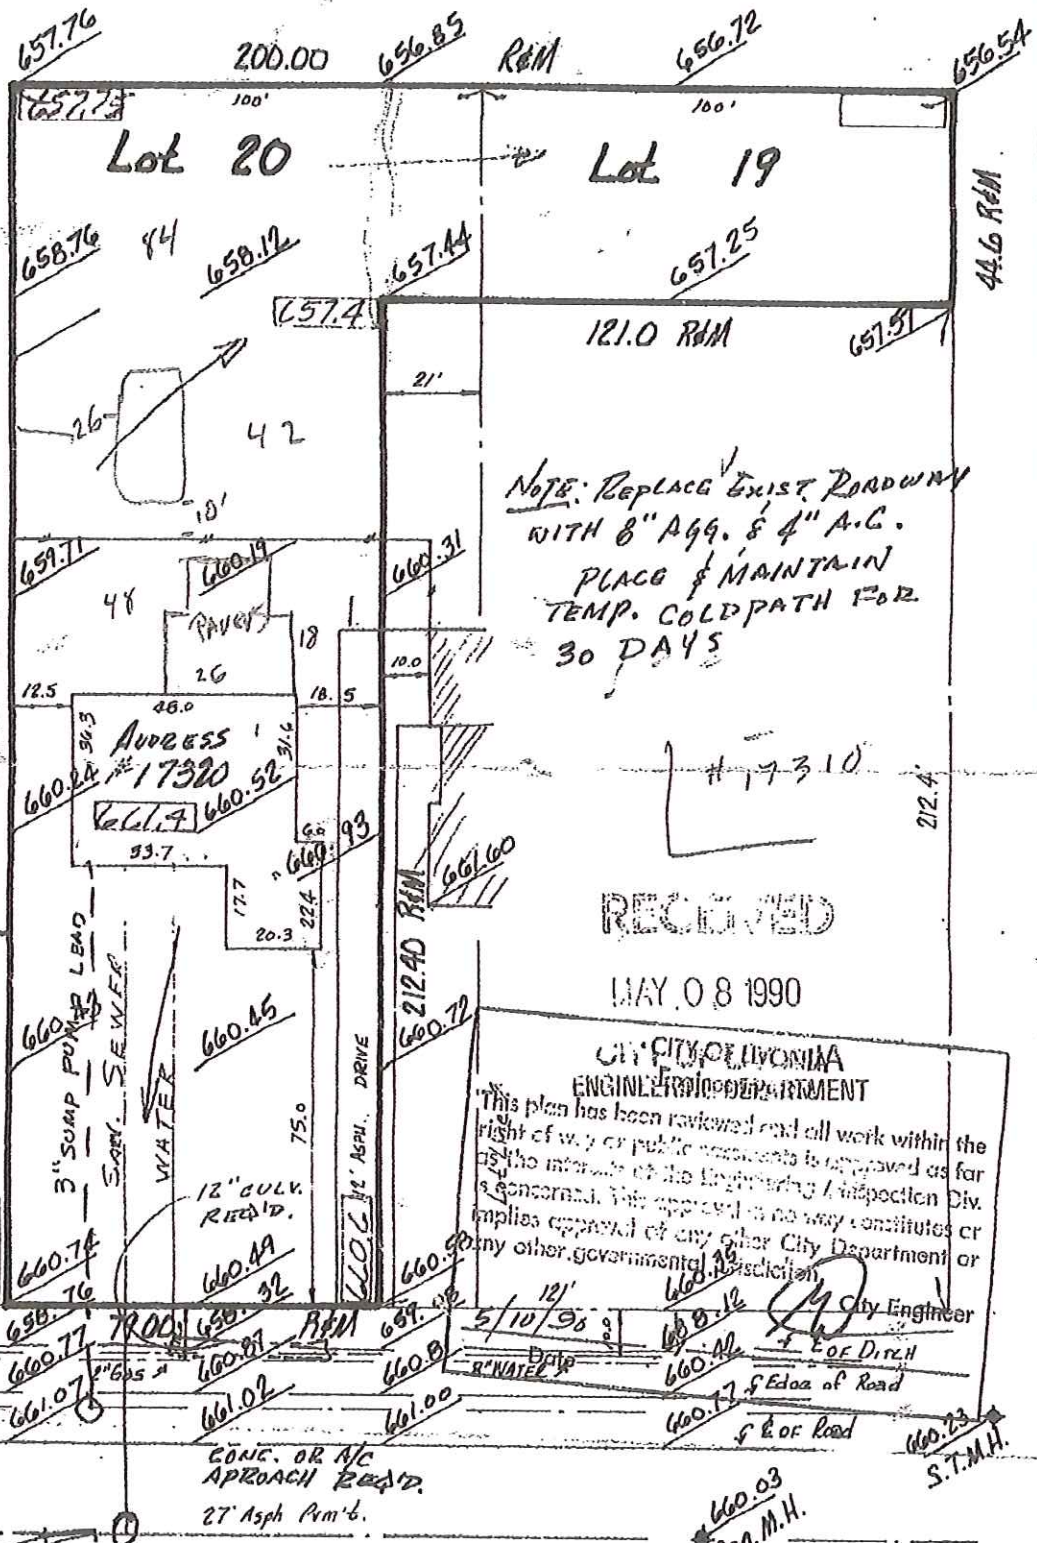 657.76
200.00
656.85
R&M
656.72
656.54
657.75
100'
100'
Lot 20
Lot 19
44.6 R&M
658.76
84
658.12
657.44
657.25
657.4
121.0 R&M
657.51
21'
26
42
10'
NOTE: REPLACE EXIST. ROADWAY
WITH 8" AGG. & 4" A.C.
PLACE & MAINTAIN
TEMP. COLDPATH FOR
30 DAYS
659.71
660.19
660.31
48
PAVERS
18
26
10.0
12.5
48.0
18.5
36.3
ADDRESS
#17320
31.6
#17310
660.24
660.52
661.4
212.4
33.7
6.0
93
661.60
17.7
22.4
20.3
212.40 R&M
RECEIVED
MAY 08 1990
3" SUMP PUMP LEAD
SAN. SEWER
WATER
660.45
660.72
75.0
12' ASPH. DRIVE
CITY OF LIVONIA
ENGINEERING DEPARTMENT
This plan has been reviewed and all work within the
right of way or public easements is approved as far
as the interests of the Engineering / Inspection Div.
is concerned. This approval in no way constitutes or
implies approval of any other City Department or
any other governmental jurisdiction
City Engineer
5/10/90
Date
12" CULV.
REQ'D.
660.6
660.74
660.49
121'
658.76
79.00
658.32
R&M
688.12
¢ OF DITCH
660.77
2" GAS
660.87
660.8
8" WATER
660.42
Edge of Road
661.07
661.02
661.00
660.77
¢ OF Road
660.23
S.T.M.H.
CONC. OR A/C
APROACH REQ'D.
27' Asph Pvm't.
660.03